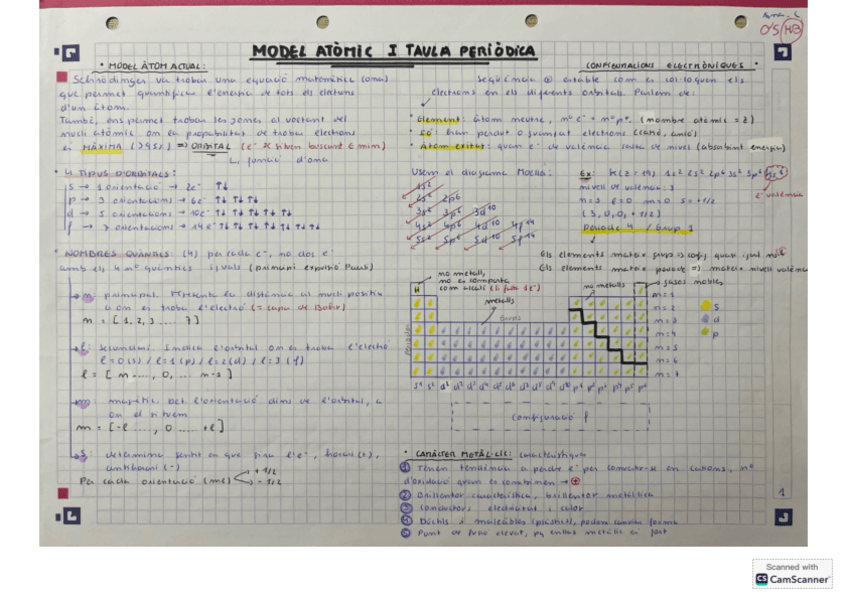 MODEL ATÒMIC I TAULA PERIÒDICA
0'5 HB
• MODEL ÀTOM ACTUAL:
Schrödinger va trobar una equació matemàtica (ona)
que permet quantificar l'energia de tots els
d'un àtom.
També, ens permet trobar les zones al voltant del
nucli atòmic on la probabilitat de trobar electrons
és MÀXIMA (>95%) => ORBITAL (e⁻ hi
↳ funció d'ona
• 4 TIPUS D'ORBITALS:
s → 1 orientació → 2e⁻ ↑↓
p → 3 orientacions → 6e⁻ ↑↓ ↑↓ ↑↓
d → 5 orientacions → 10e⁻ ↑↓ ↑↓ ↑↓ ↑↓ ↑↓
f → 7 orientacions → 14e⁻ ↑↓ ↑↓ ↑↓ ↑↓ ↑↓ ↑↓ ↑↓
• NOMBRES QUÀNTICS: (4) per cada e⁻, no dos e⁻
amb els 4 nº quàntics iguals (principi exclusió Pauli)
n: principal. Representa la distància al nucli positiu
a on es troba l'electró (= capa de Bohr)
n = [1, 2, 3 .... 7]
l: secundari. Indica l'orbital on es troba l'electró
l = 0 (s) / l = 1 (p) / l = 2 (d) / l = 3 (f)
l = [ n ...., 0, .... n-1 ]
m: magnètic. Det l'orientació dins de l'orbital, a
on el
m = [-l ...., 0 .... +l]
s: determina sentit en que gira l'e⁻, horari (+),
antihorari (-)
Per cada orientació (ml) + 1/2
- 1/2
CONFIGURACIONS ELECTRÒNIQUES •
Seqüència estable com es col·loquen els
electrons en els diferents orbitals. Parlem de:
• Element: àtom neutre, nº e⁻ = nº p⁺. (nombre atòmic = Z)
• Ió: han perdut o guanyat electrons (catió, anió)
• Àtom excitat: quan e⁻ de valència salta de nivell (absorbint energia)
Usem el diagrama Moeller:
1s²
2s² 2p⁶
3s² 3p⁶ 3d¹⁰
4s² 4p⁶ 4d¹⁰ 4f¹⁴
5s² 5p⁶ 5d¹⁰ 5f¹⁴
Ex: K (Z = 19) 1s² 2s² 2p⁶ 3s² 3p⁶ 4s¹
e⁻ valència
nivell de valència:
l=0 m=0 s=+1/2
0, 0, +1/2)
Període 4 / Grup 1
Els elements mateix grup
Els elements mateix període => mateix nivell valència
no metall,
no es comporta
com alcalí
metalls
no metalls
gasos nobles
H
Períodes
Grups
n = 1
n = 2
n = 3
n = 4
n = 5
n = 6
n = 7
s
d
p
s¹ s² d¹ d² d³ d⁴ d⁵ d⁶ d⁷ d⁸ d⁹ d¹⁰ p¹ p² p³ p⁴ p⁵ p⁶
Configuració f
• CARÀCTER METÀL·LIC: característiques
1 Tenen tendència a perdre e⁻ per convertir-se en cations, nº
d'oxidació quan es combinen → +
2 Brillantor característica, brillantor metàl·lica
3 Conductors electricitat i calor
4 Dúctils i mal·leables (plàstics), poden canviar forma
5 Punt de fusió elevat, pq enllaç metàl·lic és fort
1
Scanned with
CS CamScanner